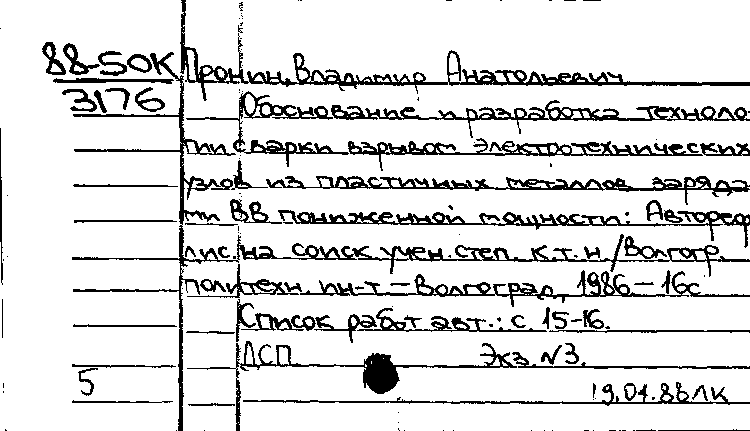 88-50К Пронин, Владимир Анатольевич
3176 Обоснование и разработка техноло
гии сварки взрывом электротехнических
узлов из пластичных металлов заряда
ми ВВ пониженной мощности: Автореф
дис. на соиск. учен. степ. к.т.н./Волгогр.
политехн. ин-т. – Волгоград, 1986 – 16с
Список работ авт.: с. 15-16.
ДСП Экз. №3.
5 19.04.88 ЛК